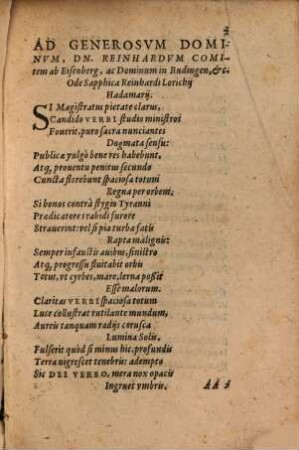 2
AD GENEROSVM DOMI-
NVM, DN. REINHARDVM COMI-
tem ab Eisenberg, ac Dominum in Budingen, &c.
Ode Sapphica Reinhardi Lorichij
Hadamarij.
SI Magistratus pietate clarus,
Candido VERBI studio ministros
Fouerit, puro sacra nunciantes
Dogmata sensu:
Publicæ vulgò bene res habebunt,
Atq; prouentu penitus secundo
Cuncta florebunt spaciosa totum
Regna per orbem.
Si bonos contrà stygio Tyranni
Prædicatores rabidi furore
Strauerint: vel si pia turba fatis
Rapta malignis:
Semper infaustis auibus, sinistro
Atq; progressu fluitabit orbis
Totus, vt cyrbes, mare, lerna possit
Esse malorum.
Claritas VERBI spaciosa totum
Luce collustrat rutilante mundum,
Aureis tanquam radijs corusca
Lumina Solis.
Fulserit quòd si minus hic, profundis
Terra nigrescet tenebris: adempto
Sic DEI VERBO, mera nox opacis
Ingruet vmbris.